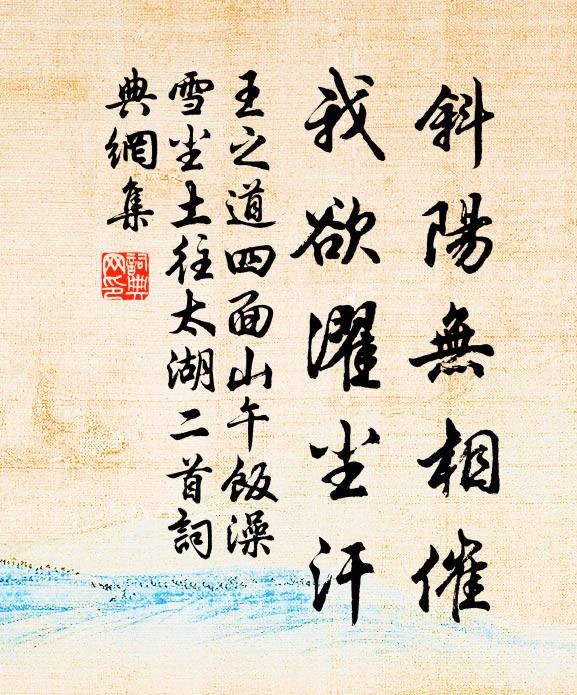 斜陽無相催
我欲濯尘汗
王之道四面山午飯澡
雪尘土往太湖二首詞
典網集
詞典网印